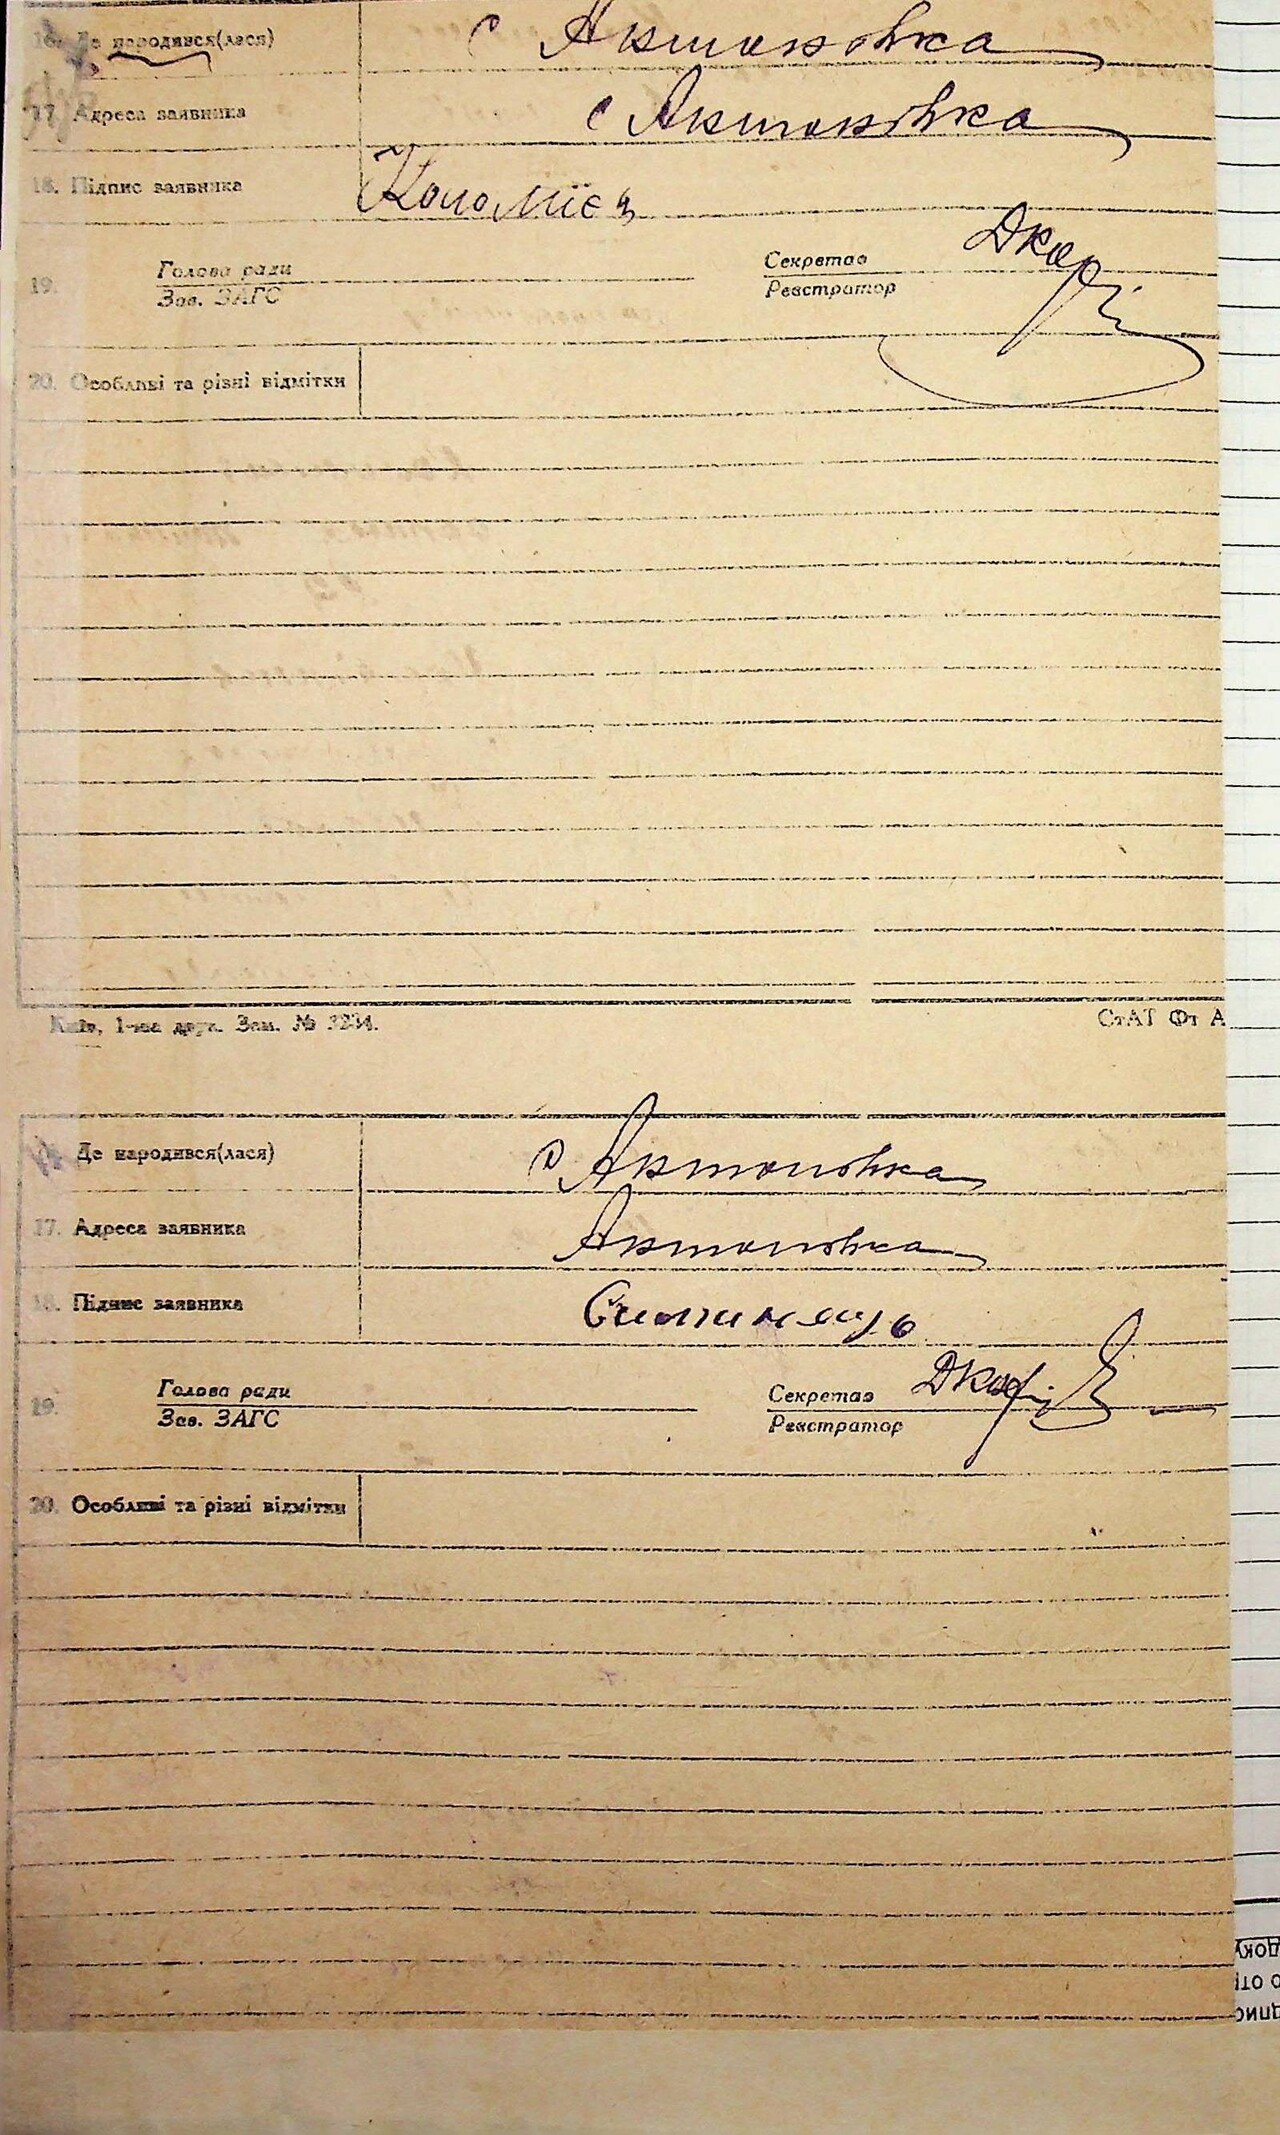 16. Де народився(лася) с Антоновка
17. Адреса заявника с Антоновка
18. Підпис заявника Коломієц
19. Голова ради Секретар
Зав. ЗАГС Реєстратор
20. Особливі та різні відмітки
Київ, 1-ша друк. Зам. № 3234. СтАТ Фт А
Де народився(лася) с Антоновка
17. Адреса заявника Антоновка
18. Підпис заявника
19. Голова ради Секретар
Зав. ЗАГС Реєстратор
20. Особливі та різні відмітки